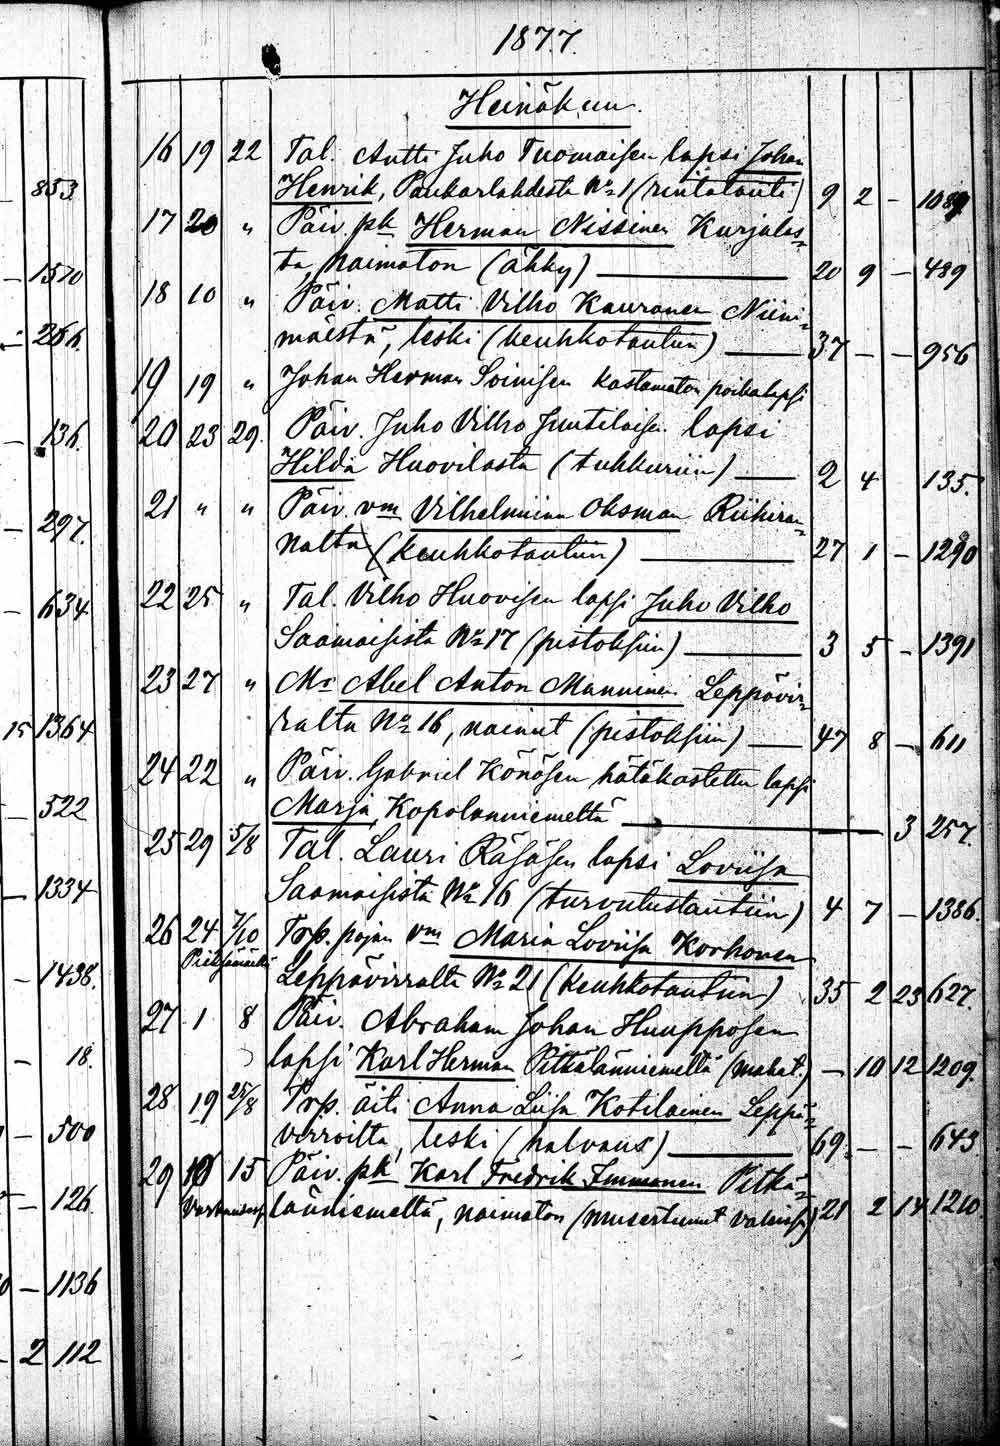 1877.
Heinäkuu.
853
16 19 22 Tal. Antti Juho Tuomaisen lapsi Johan
Henrik, Paukarlahdesta No 1 (rintatauti) 9 2 – 1089
17 20 „ Päiv. pk Herman Nissinen Kurjalas=
ta, naimaton (ähky) 20 9 – 489
– 1570
18 10 „ Päiv. Matti Vilho Kauranen Niini-
mäestä, leski (keuhkotautiin) 37 – – 956
266.
19 19 „ Johan Herman Soinisen kastamaton poikalapsi
– 136.
20 23 29. Päiv. Juho Vilho Juutilaisen lapsi
Hilda Huovilasta (tuhkuriin) 2 4 135.
21 „ „ Päiv. vm Vilhelmiina Oksman Riihiran=
nalta (keuhkotautiin) 27 1 – 1290
– 297.
22 25 „ Tal. Vilho Huovisen lapsi Juho Vilho
Saamaisista No 17 (pistoksiin) 3 5 – 1391
– 634.
23 27 „ Mr Abel Anton Manninen Leppävir=
ralta No 16, nainut (pistoksiin) 47 8 – 611
15 1364.
24 22 „ Päiv. Gabriel Könösen hätäkastettu lapsi
Marja, Kopolanniemeltä 3 257.
– 522
25 29 5/8 Tal. Lauri Räsäsen lapsi Loviisa
Saamaisista No 16 (turvutustautiin) 4 7 – 1386.
– 1334
26 24 7/10 Trp. pojan vm Maria Loviisa Korhonen
Pieksämäellä Leppävirralta No 21 (keuhkotautiin) 35 2 23 627.
– 1438.
27 1 8 Päiv. Abraham Johan Huupposen
lapsi Karl Herman Pitkälänniemeltä (mahat.) – 10 12 1209.
– 18.
28 19 25/8 Trp. äiti Anna Liisa Kotilainen Leppä=
virroilta, leski (halvaus) 69. – – 643
– 500
29 10 15 Päiv. pk Karl Fredrik Immonen Pitkä=
länniemeltä, naimaton (musertunut 21 2 14 1210.
126.
– 1136
2 112